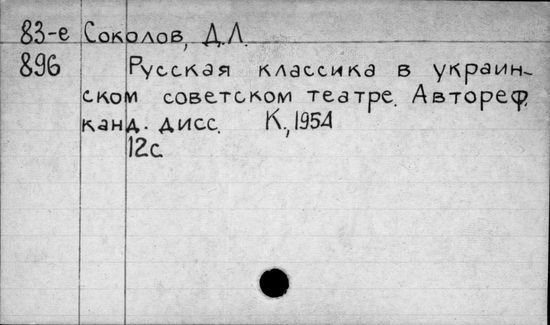 83-е Соколов, Д.Л.
896 Русская классика в украин-
ском советском театре. Автореф.
канд. дисс. К., 1954
12с.